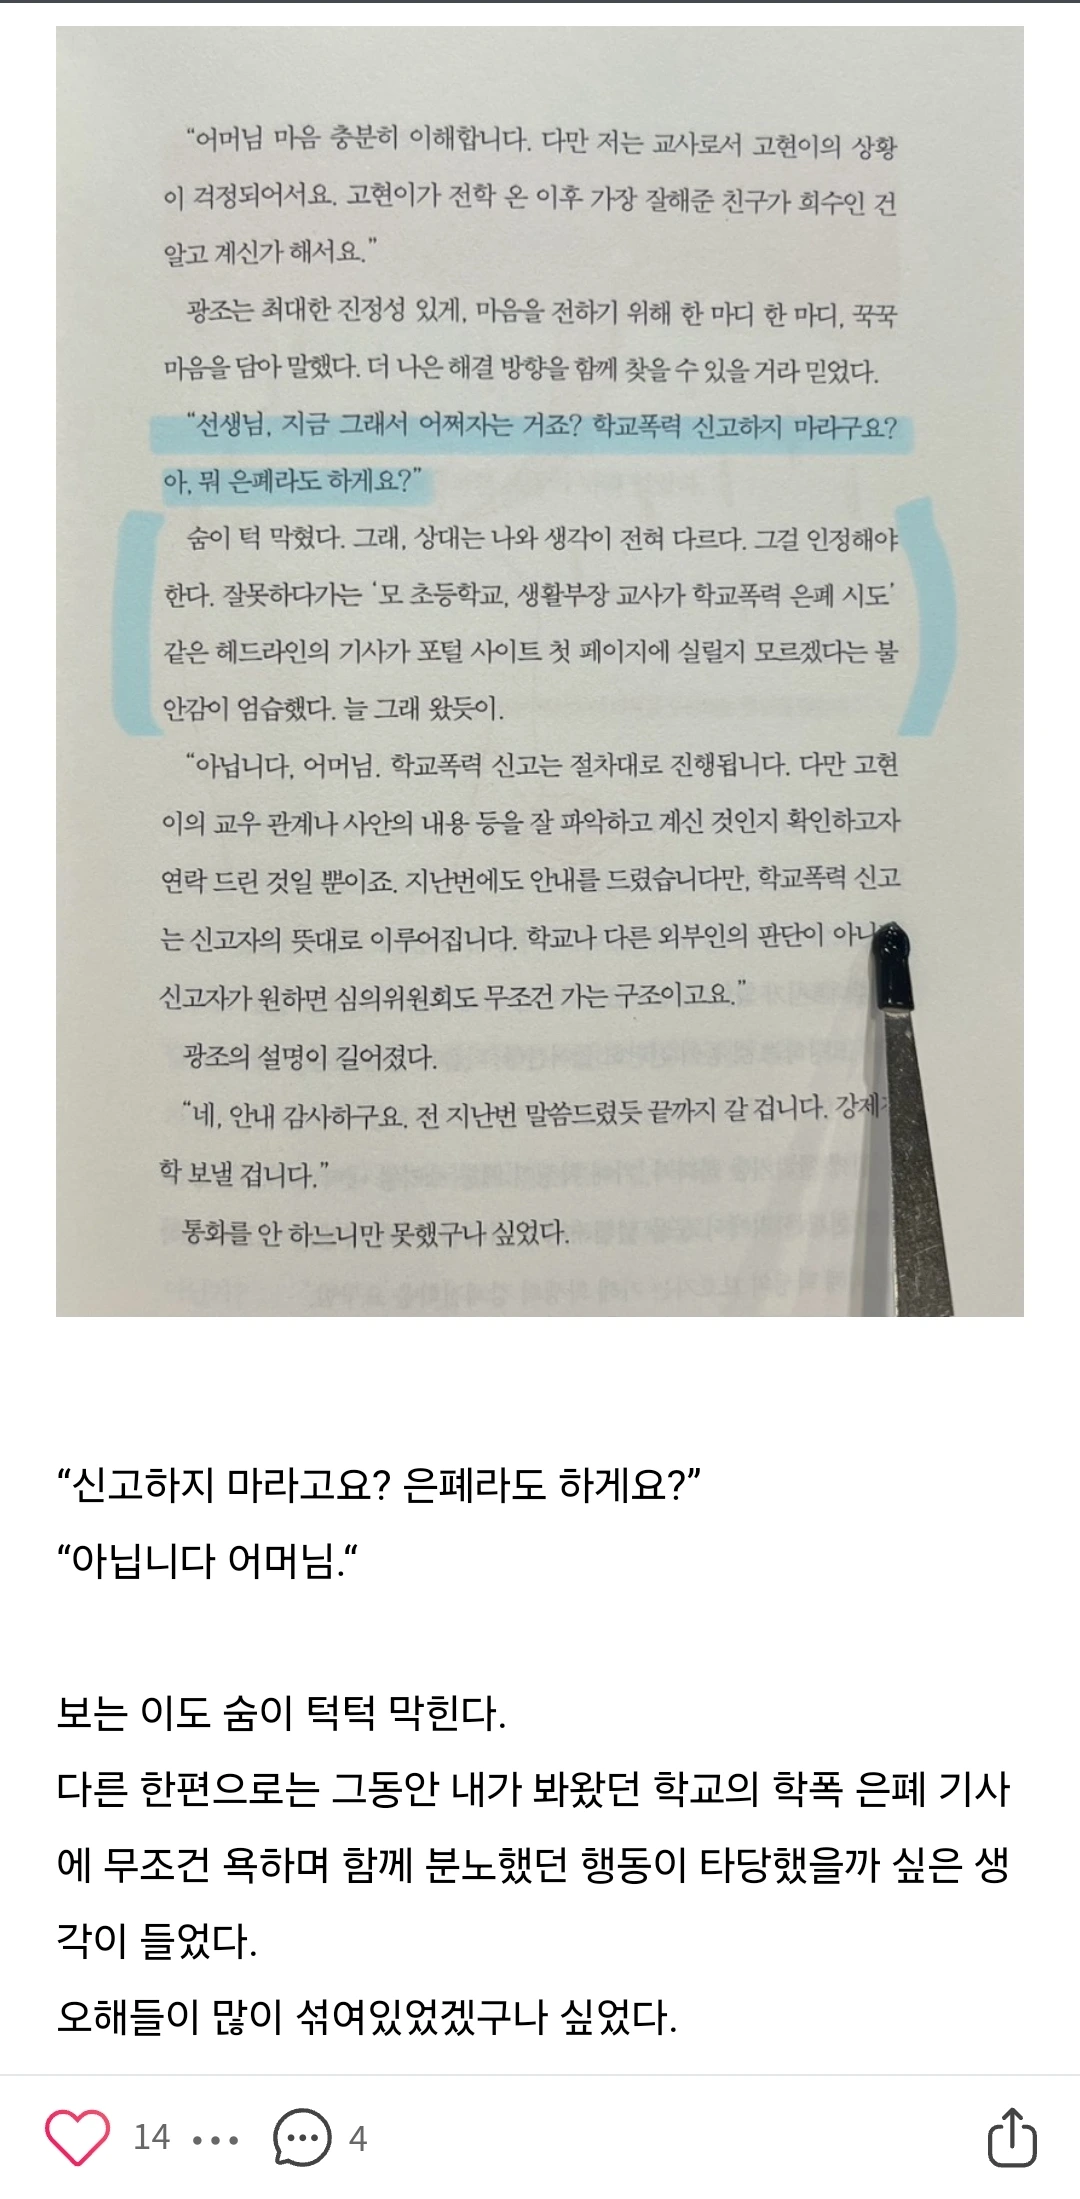 “어머님 마음 충분히 이해합니다. 다만 저는 교사로서 고현이의 상황
이 걱정되어서요. 고현이가 전학 온 이후 가장 잘해준 친구가 희수인 건
알고 계신가 해서요.”
광조는 최대한 진정성 있게, 마음을 전하기 위해 한 마디 한 마디, 꾹꾹
마음을 담아 말했다. 더 나은 해결 방향을 함께 찾을 수 있을 거라 믿었다.
“선생님, 지금 그래서 어쩌자는 거죠? 학교폭력 신고하지 마라구요?
아, 뭐 은폐라도 하게요?”
숨이 턱 막혔다. 그래, 상대는 나와 생각이 전혀 다르다. 그걸 인정해야
한다. 잘못하다가는 ‘모 초등학교, 생활부장 교사가 학교폭력 은폐 시도’
같은 헤드라인의 기사가 포털 사이트 첫 페이지에 실릴지 모르겠다는 불
안감이 엄습했다. 늘 그래 왔듯이.
“아닙니다, 어머님. 학교폭력 신고는 절차대로 진행됩니다. 다만 고현
이의 교우 관계나 사안의 내용 등을 잘 파악하고 계신 것인지 확인하고자
연락 드린 것일 뿐이죠. 지난번에도 안내를 드렸습니다만, 학교폭력 신고
는 신고자의 뜻대로 이루어집니다. 학교나 다른 외부인의 판단이 아니
신고자가 원하면 심의위원회도 무조건 가는 구조이고요.”
광조의 설명이 길어졌다.
“네, 안내 감사하구요. 전 지난번 말씀드렸듯 끝까지 갈 겁니다. 강제
학 보낼 겁니다.”
통화를 안 하느니만 못했구나 싶었다.
“신고하지 마라고요? 은폐라도 하게요?”
“아닙니다 어머님.“
보는 이도 숨이 턱턱 막힌다.
다른 한편으로는 그동안 내가 봐왔던 학교의 학폭 은폐 기사
에 무조건 욕하며 함께 분노했던 행동이 타당했을까 싶은 생
각이 들었다.
오해들이 많이 섞여있었겠구나 싶었다.
14 4